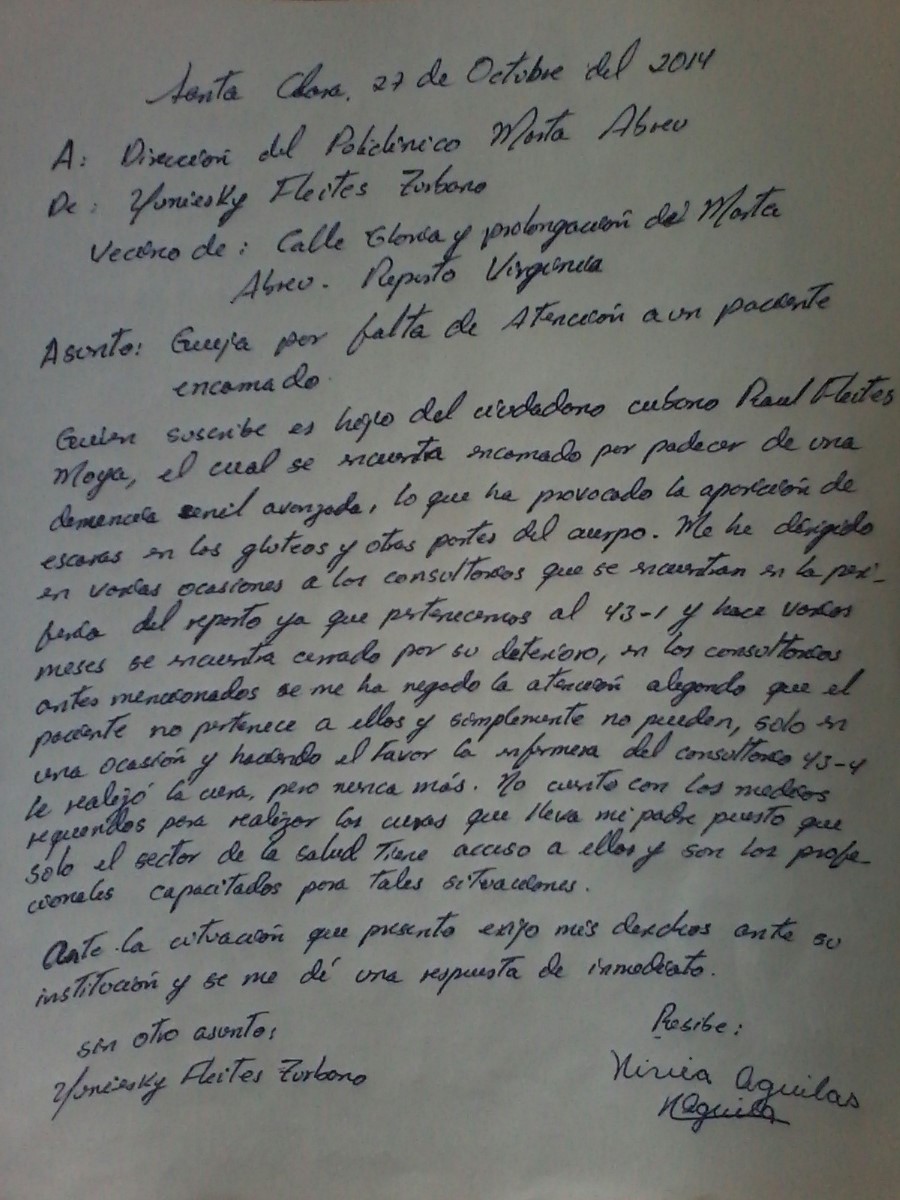 Santa Clara, 27 de Octubre del 2014
A: Dirección del Policlínico Marta Abreu
De: Yuniesky Fleites Zurbano
Vecino de: Calle Gloria y prolongación de Marta
Abreu. Reparto Virginia
Asunto: Queja por falta de Atención a un paciente
encamado.
Quien suscribe es hijo del ciudadano cubano Raul Fleites
Moya, el cual se encuentra encamado por padecer de una
demencia senil avanzada, lo que ha provocado la aparición de
escaras en los gluteos y otras partes del cuerpo. Me he dirigido
en varias ocasiones a los consultorios que se encuentran en la peri-
feria del reparto ya que pertenecemos al 43-1 y hace varios
meses se encuentra cerrado por su deterioro, en los consultorios
antes mencionados se me ha negado la atención alegando que el
paciente no pertenece a ellos y simplemente no pueden, solo en
una ocasión y haciendo el favor la enfermera del consultorio 43-4
le realizó la cura, pero nunca más. No cuento con los medios
requeridos para realizar las curas que lleva mi padre puesto que
solo el sector de la salud tiene acceso a ellos y son los profe-
cionales capacitados para tales situaciones.
Ante la situación que presento exijo mis derechos ante su
institución y se me dé una respuesta de inmediato.
Sin otro asunto:
Yuniesky Fleites Zurbano
Recibe:
Nirvia Aguilas
NAguila